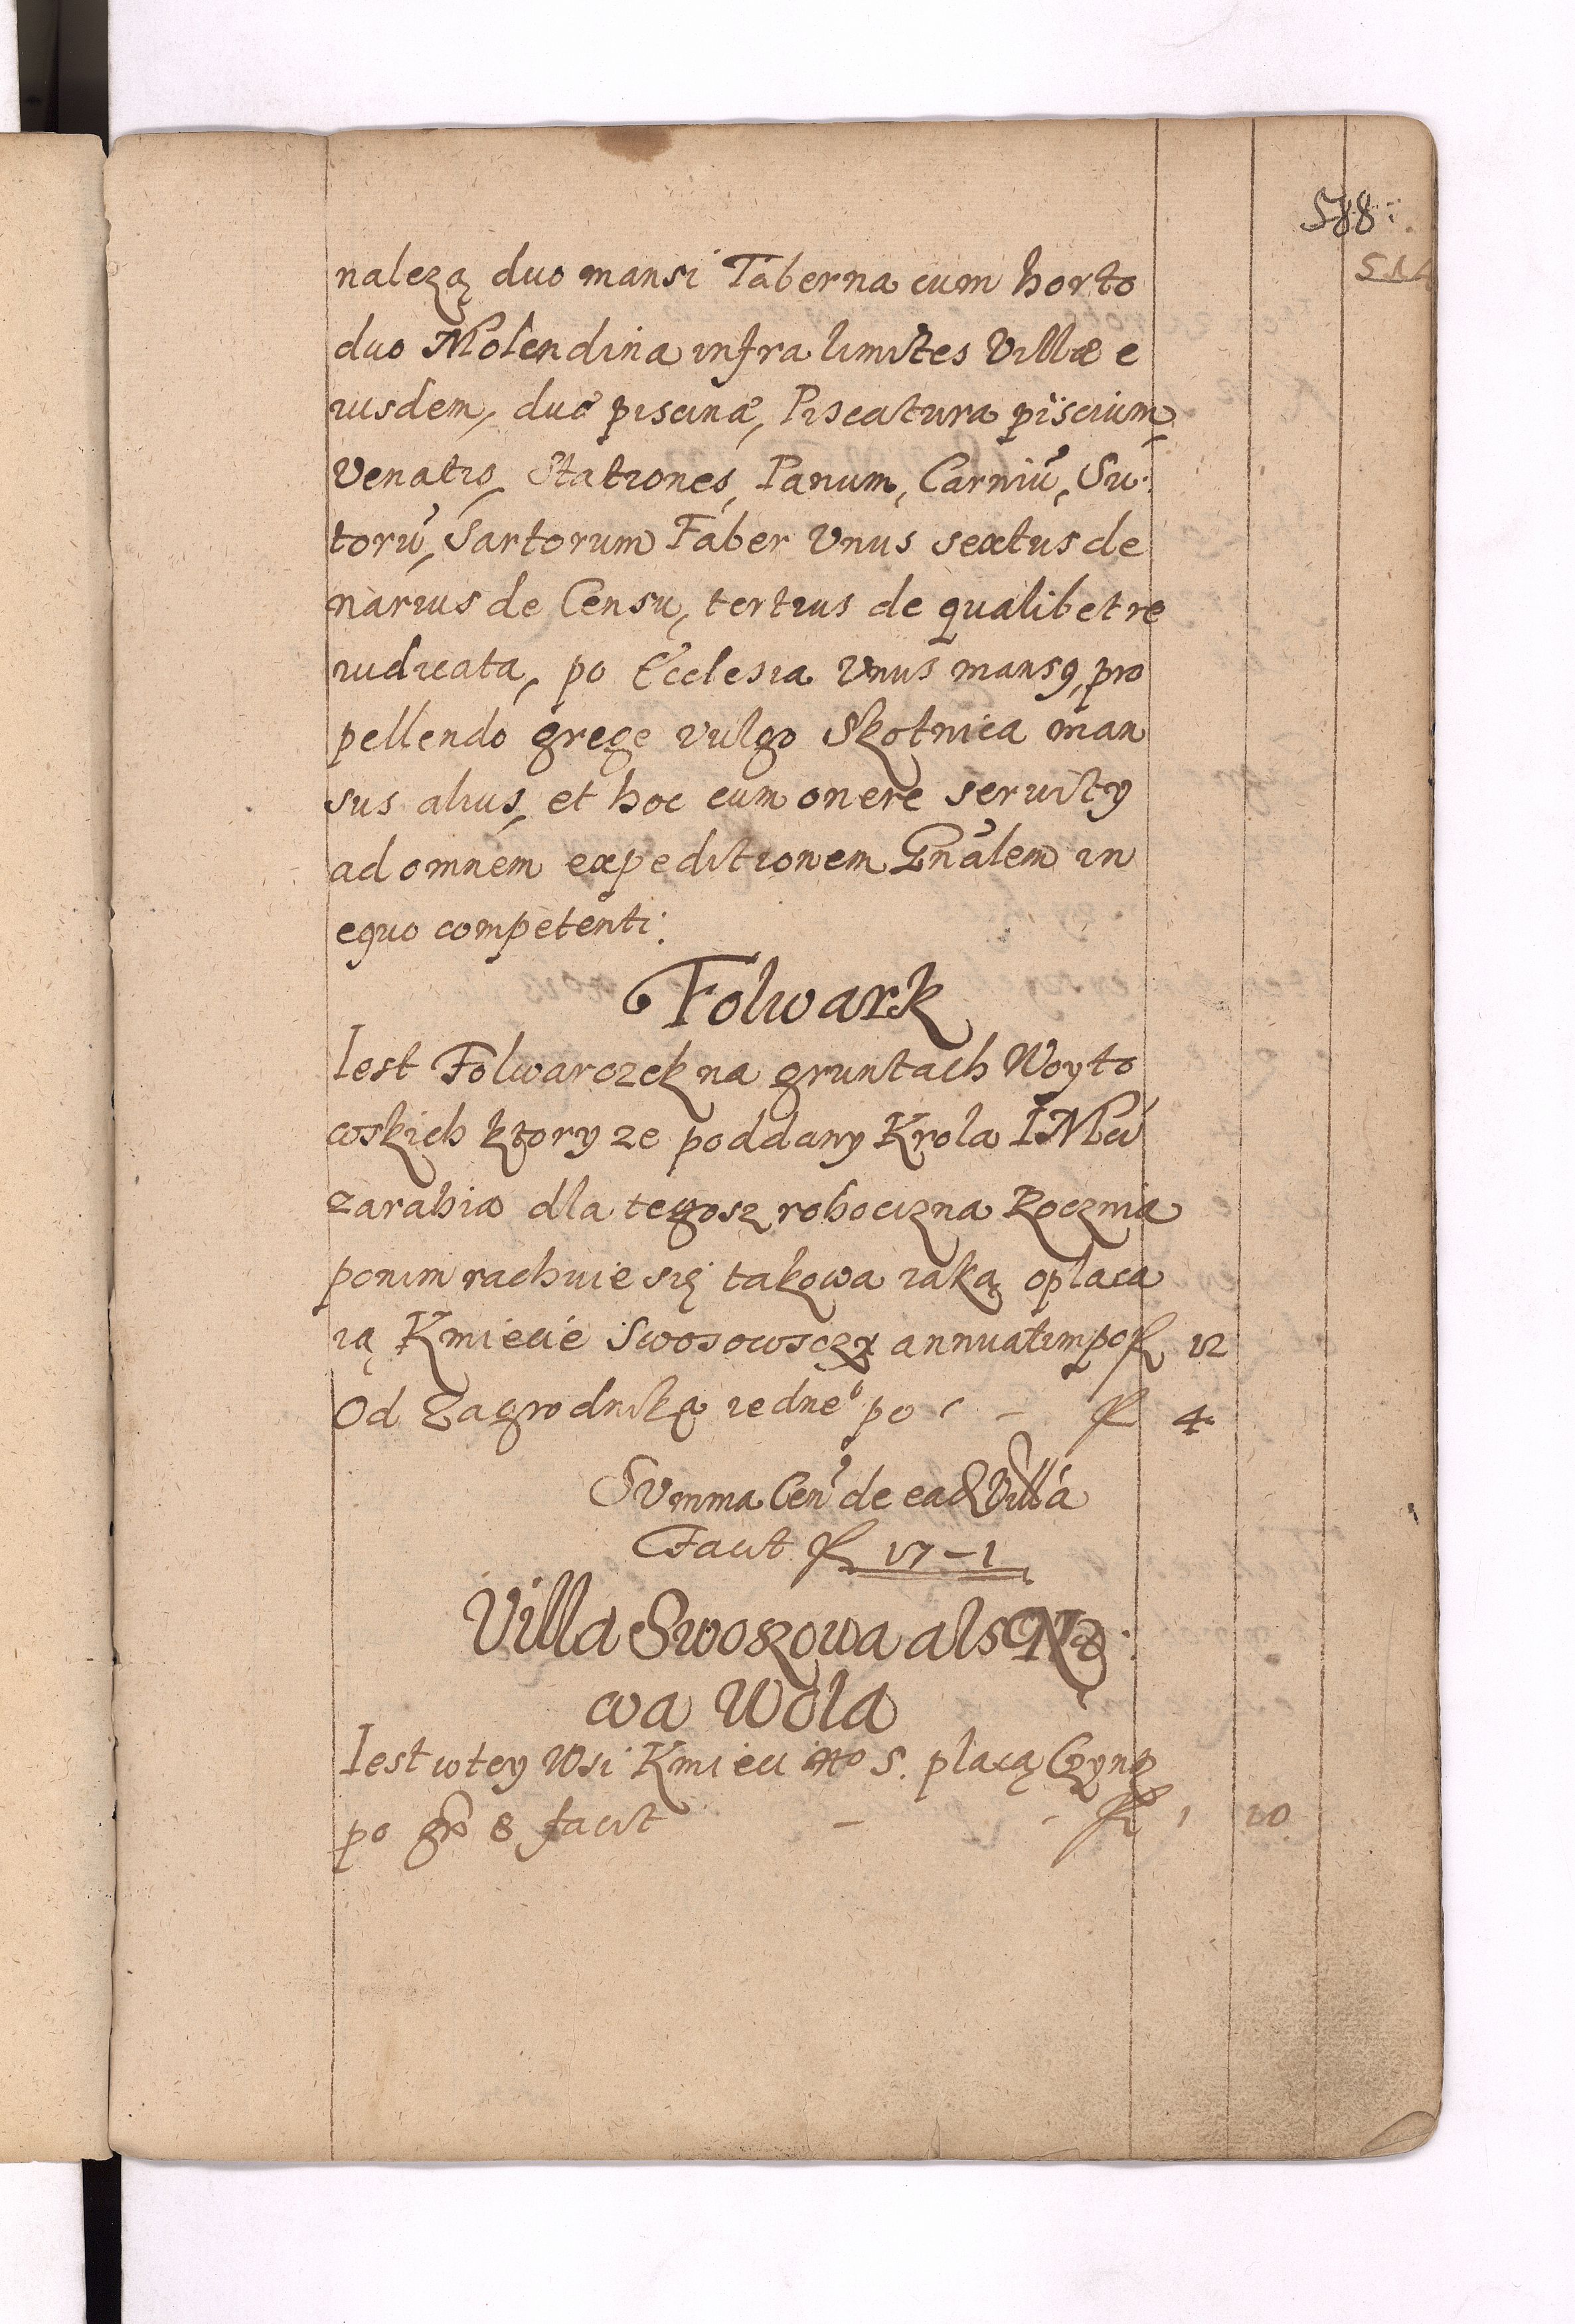 588
514
nalezą duo mansi Taberna cum horto
duo Molendina infra limites Villæ e
iusdem, duæ piscinæ, Piscatura piscium,
Venatio, Stationes, Panum, Carniũ, Su
torũ, Sartorum Faber Vnus sextus de
narius de Censu, tertius de qualibet re
iudicata, po Ecclesia Vnus mansꝯ, pro
pellendo grege vulgo Skotnica man
sus alius, et hoc cum onere seruity
ad omnem expeditionem Gnãlem in
equo competenti.
Folwark
Iest Folwarczek na gruntach Woyto
wskich ktory ze poddany Krola IMci
zarabia dla tegosz robocizna Rocznia
ponim rachuie się takowa iaką oplaca
ią Kmiecie Swosowsczy annuatim po fl 12
Od Zagrodnika iedneº po - fl 4
Summa Cen de ead Villa
Facit fl 17 - 1
Villa Swoszowa als No
wa Wola
Iest wtey Wsi Kmieci nro 5. placą Czynß
po gr 8 facit - fl 1 10